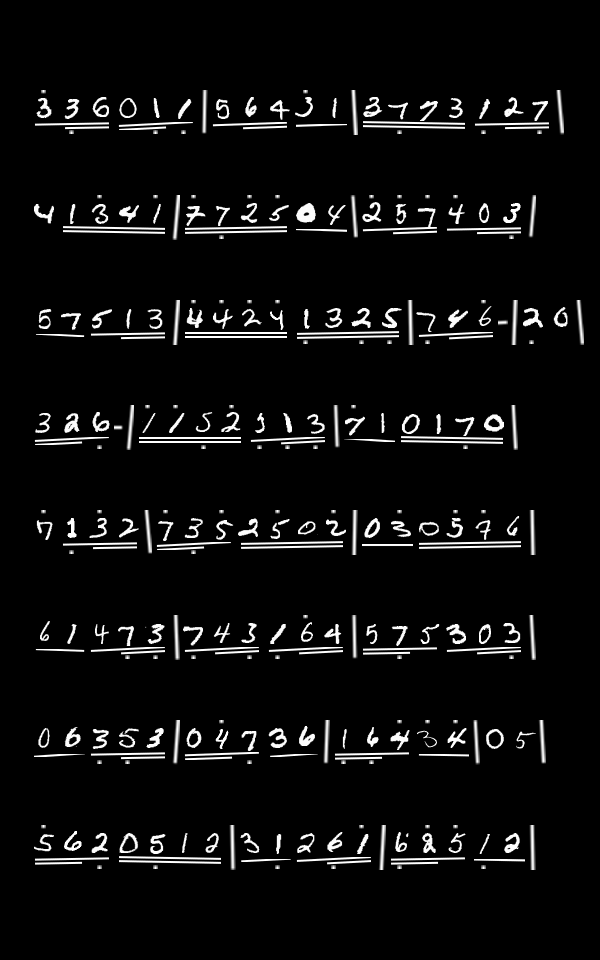 336011|56431|3773127
41341|772504|257403
57513|44241325|746-|20
326-|1152113|710170
7132|7352502|030576
61473|743164|575303
06353|04736|16434|05
5620512|31261|62512